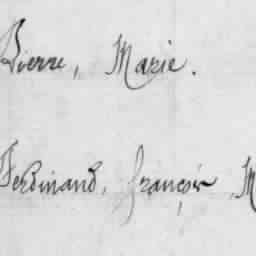 Pierre, Marie.
Ferdinand, François, M